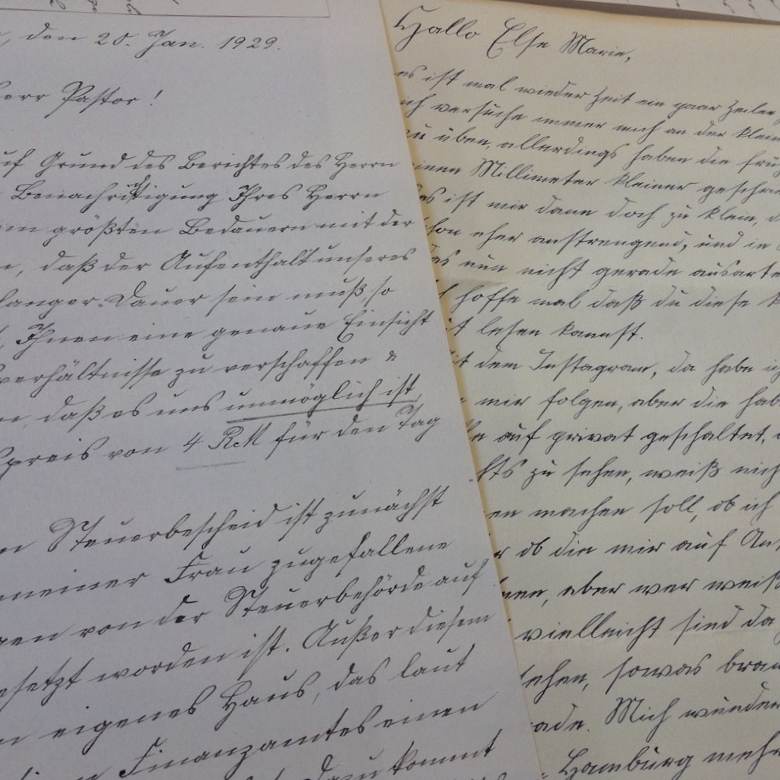 , den 20. Jan. 1929.
Herr Pastor!
auf Grund des Berichtes des Herrn
Benachrichtigung Ihres Herrn
größten Bedauern mit der
, daß der Aufenthalt unseres
langer Dauer sein muß, so
, Ihnen eine genaue Einsicht
verhältnisse zu verschaffen &
, daß es uns unmöglich ist,
preis von 4 RM für den Tag
Steuerbescheid ist zunächst
meiner Frau zugefallene
von der Steuerbehörde auf
gesetzt worden ist. Außer diesem
eigenes Haus, das laut
Finanzamtes einen
dazu kommt
Hallo Else Marie,
es ist mal wieder Zeit ein paar Zeilen
ich versuche immer mich an der klein
zu üben, allerdings haben die frü
einen Millimeter kleiner geschr
es ist mir dann doch zu klein,
schon eher anstrengend, und in
das nun nicht gerade ausarte
ich hoffe mal daß du diese
lesen kannst.
mit dem Instagram, da habe
mir folgen, aber die hab
auf privat geschaltet,
zu sehen, weiß nich
machen soll, ob ich
ob die mir auf
, aber wer weiß
vielleicht sind da
sehen, sowas brau
Mich wunder
Hamburg mehr